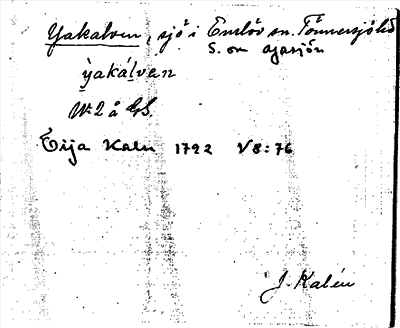 Yakalven, sjö i Enslöv sn. Tönnersjö hd
S. om Ajasjön
ỳakálven
W:2 å GS.
Eija Kalu 1792 V8:76
J. Kalén